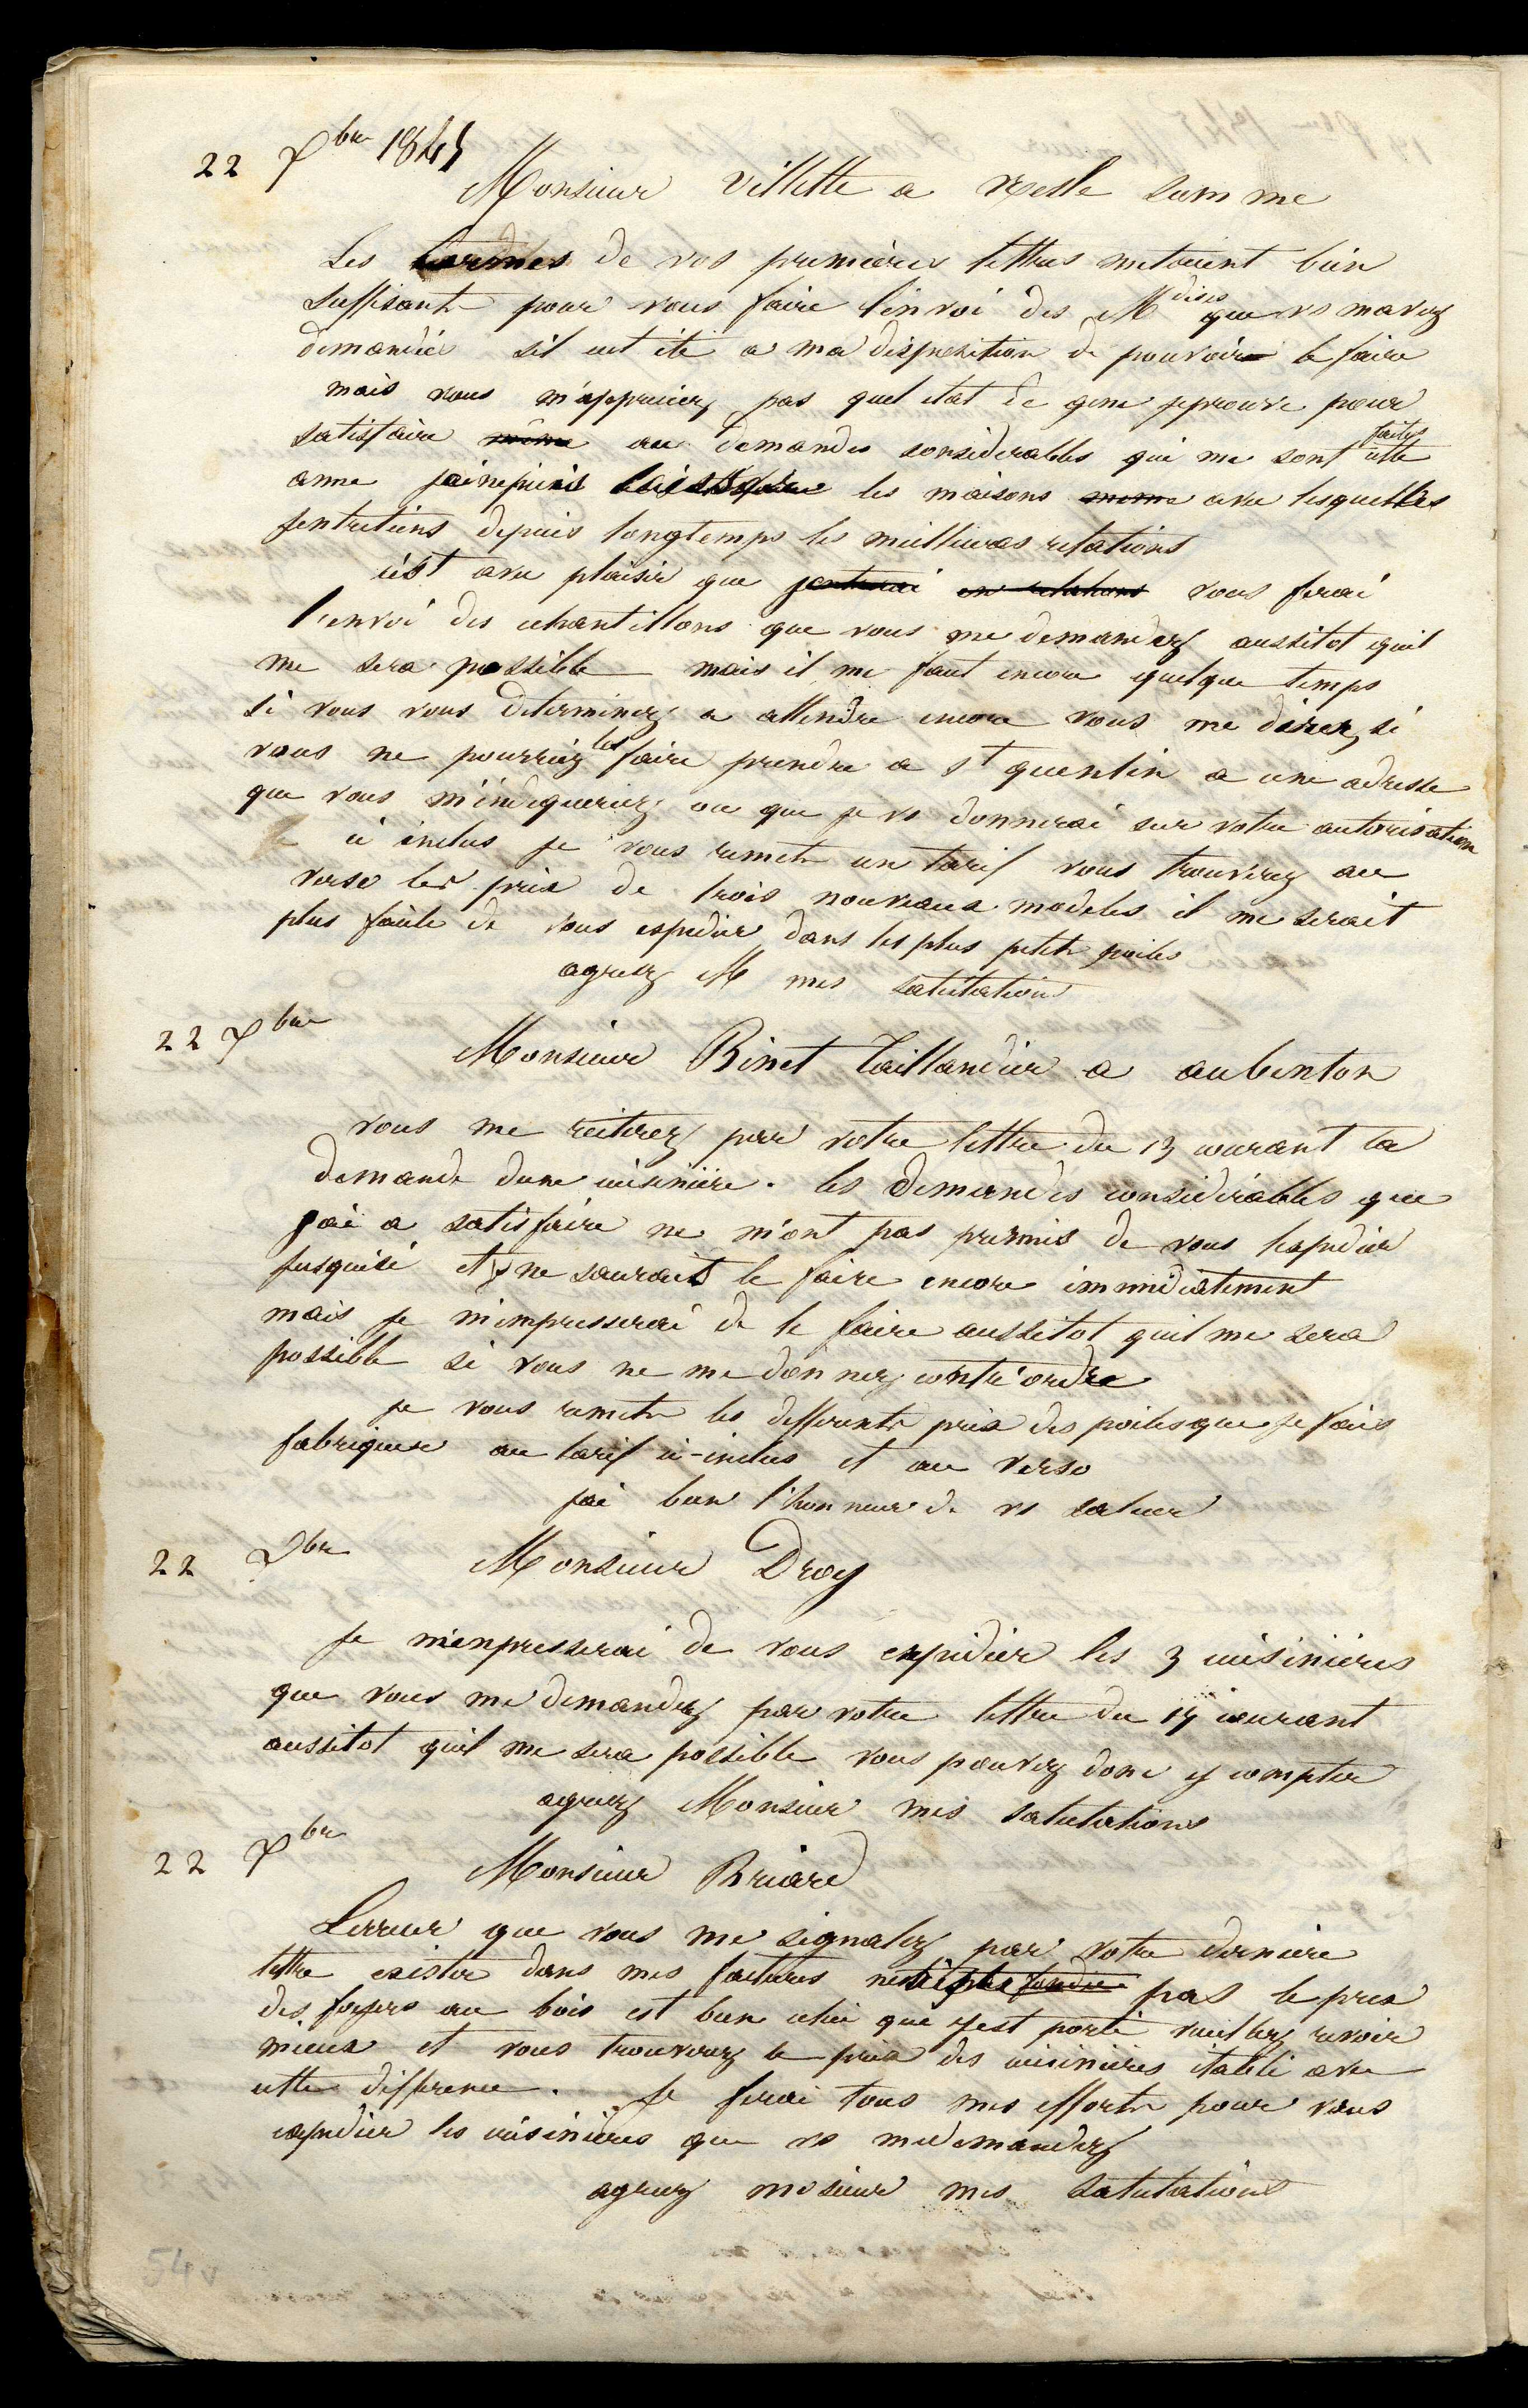 22 7bre 1845
Monsieur Villette a Nesle Somme
Les termes de vos premières lettres metaient bien
suffisants pour vous faire l'envoi des Mdises que vs mavez
demandées sil eut été a ma disposition de pouvoir le faire
mais vous n'appreciez pas quel etat de gene jeprouve pour
satisfaire même aux demandes considerables qui me sont faites cette
anne les maisons même avec lesquelles
jentretiens depuis longtemps les meilleures relations
c'est avec plaisir que jentrerai en relations vous ferai
l'envoi des echantillons que vous me demandez aussitot quil
me sera possible mais il me faut encore quelque temps
si vous vous determinez a attendre encore vous me direz si
vous ne pourriez les faire prendre a St quentin a une adresse
que vous m'indiqueriez ou que je vs donnerai sur votre autorisation
ci inclus je vous remets un tarif vous trouverez au
verso les prix de trois nouveaux modeles il me serait
plus facile de vous expedier dans les plus petits poiles
agreez M mes salutations
22 7bre
Monsieur Binet Taillandier a aubenton
vous me reiterez par votre lettre du 13 courant la
demande dune cuisinière. les demandes considérables que
jai a satisfaire ne m'ont pas permis de vous lexpedier
jusquici et je ne saurais le faire encore immediatement
mais je m'empresserai de le faire aussitot quil me sera
possible si vous ne me donnez contre'ordre
je vous remets les differents prix des poiles que je fais
fabriquer au tarif ci-inclus et au verso
jai bien l'honneur de vs saluer
22 7bre
Monsieur Droy
je m'enpresserai de vous expédier les 3 cuisinières
que vous me demandez par votre lettre du 14 courant
aussitot quil me sera possible vous pouvez donc y compter
agreez Monsieur mes salutations
22 7bre
Monsieur Briard
Lerreur que vous me signalez par votre derniere
lettre exister dans mes factures pas le prix
des foyers au bois est bien celui qui y est porté veuillez revoir
mieux et vous trouverez le prix des cuisinières établi avec
cette difference. je ferai tous mes efforts pour vous
expedier les cuisinières que vs me demandez
agreez mosieur mes salutations
54v